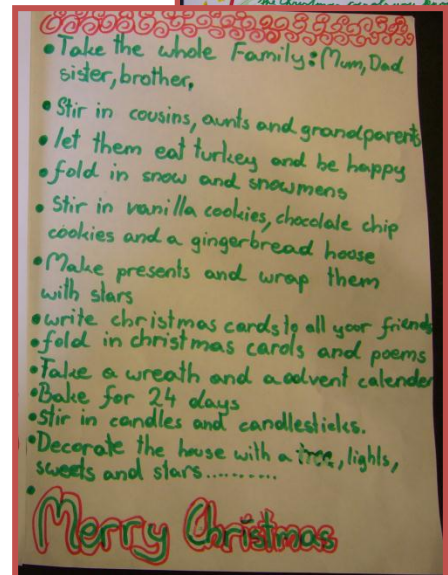 • Take the whole Family: Mum, Dad
sister, brother,
• Stir in cousins, aunts and grandparents
• let them eat turkey and be happy
• fold in snow and snowmens
• Stir in vanilla cookies, chocolate chip
cookies and a gingerbread hoose
• Make presents and wrap them
with stars
• write christmas cards to all your friends
• fold in christmas carols and poems
• Take a wreath and a advent calender
• Bake for 24 days
• Stir in candles and candlesticks.
• Decorate the house with a tree, lights,
sweets and stars..........
•
Merry Christmas